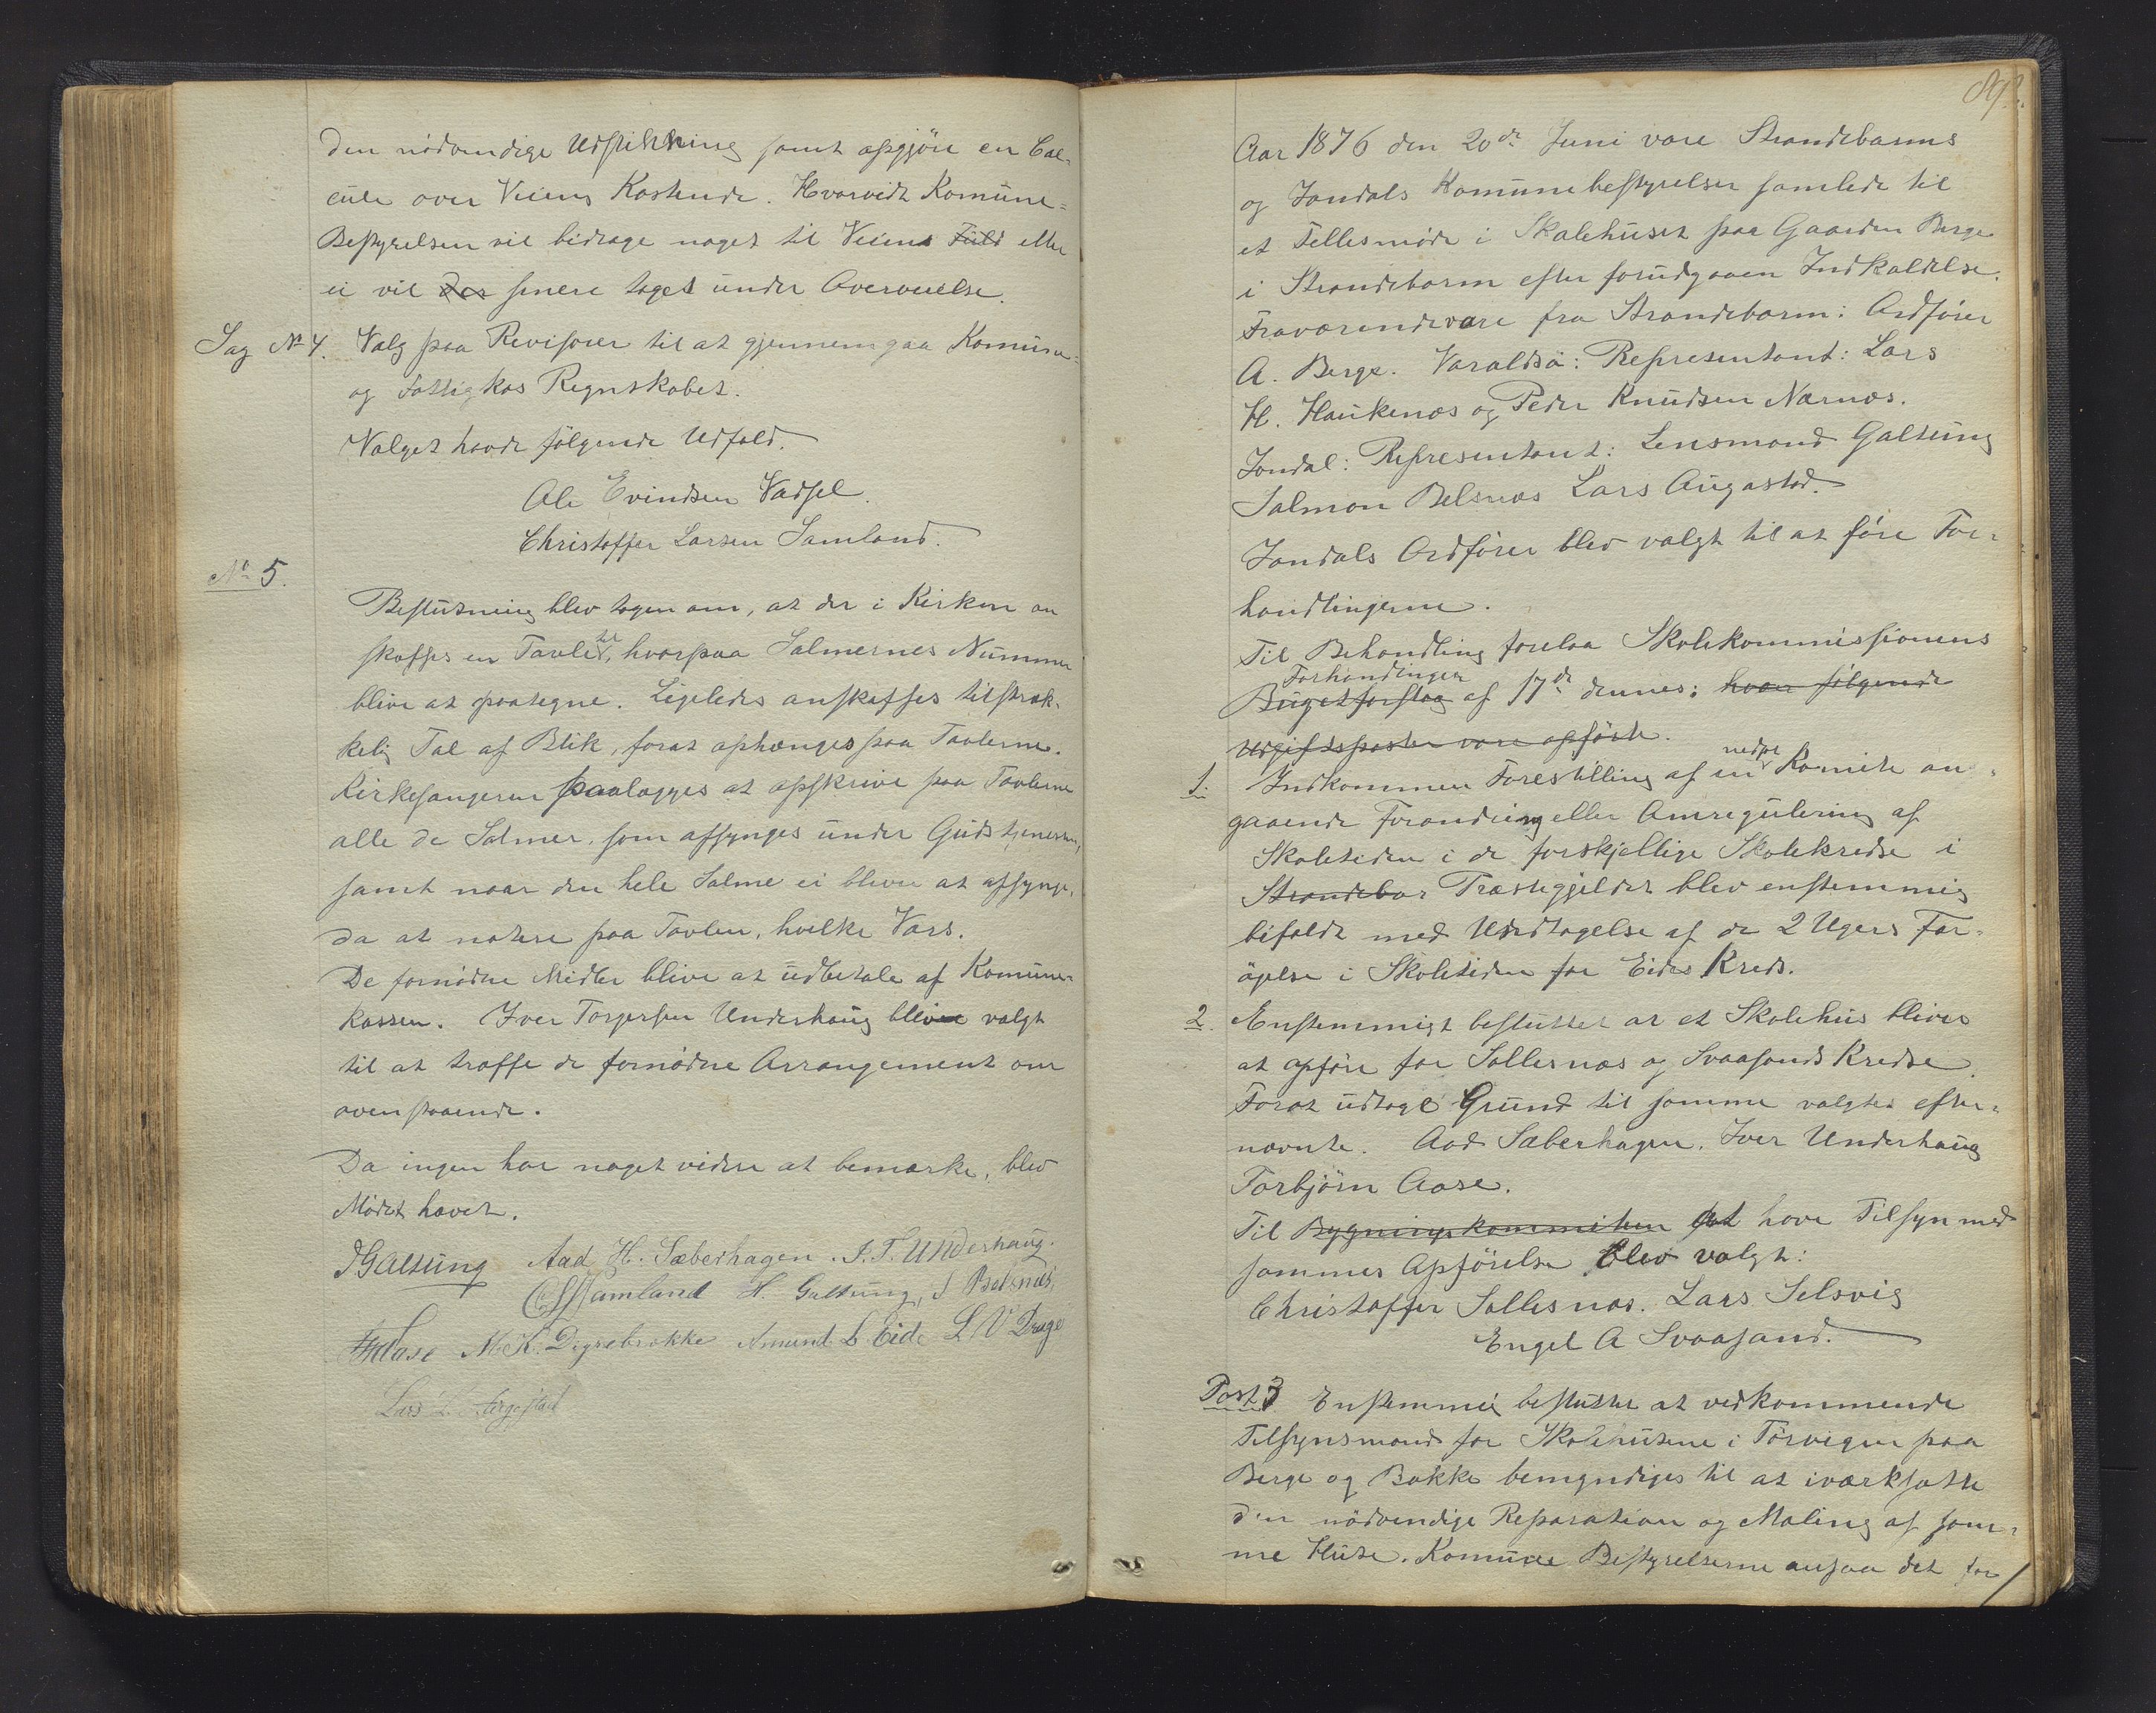 den nödvendige Udstikning samt opgjöre en Cal-
cule over Veiens Kostende. Hvorvidt Komune-
Bestyrelsen vil bidrage noget til Veiens Fuld eller
ei vil der senere taget under Overveielse.
Sag No 4. Valg paa Revisorer til at gjennemgaa Komune-
og Fattigkas Regnskabet.
Valget havde fölgende Udfald.
Ole Evindsen Vadsel.
Christoffer Larsen Samland.
No 5.
Beslutning blev tagen om, at der i Kirken an
skaffes en Tavle, hvorpaa Salmernes Nummer
blive at paategne. Ligeledes anskaffes tilstræk-
kelig Tal af Blik, forat ophænges paa Tavlerne.
Kirkesangeren paalægges at opskrive paa Tavlerne
alle de Salmer, som afsynges under Gudstjenesten,
samt naar den hele Salme ei bliver at afsynge,
da at notere paa Tavlen, hvilke Vers.
De fornödne Midler blive at udbetale af Komune-
kassen. Iver Torgersen Underhaug bliver valgt
til at træffe de fornödne Arrangement om
ovenstaaende.
Da ingen har noget videre at bemærke, blev
Mödet hævet.
JGaltung Aad H. Sæberhagen. I. T. Underhaug.
C L Samland H. Galtung, S Belsnæs,
Aase M. K. Dygrebrække Amund L Eide L V Drage
Lars L. Augestad
Aar 1876 den 20de Juni vare Strandebarms
og Jondals Komunebestyrelser samlede til
et Fellesmöde i Skolehuset paa Gaarden Berge
i Strandebarm efter forudgaaen Indkaldelse.
Fraværende vare fra Strandebarm: Ordförer
A. Berge. Varaldsö: Representant: Lars
H. Haukenæs og Peder Knudsen Nærnæs.
Jondal: Representant: Lensmand Galtung
Salmon Belsnæs Lars Augastad.
Jondals Ordförer blev valgt til at före For-
handlingerne.
Til Behandling forelaa Skolekommissionens
Forhandlinger
Bugetforslag af 17de dennes; hvor fölgende
Udgiftsposter vare opförte.
1. Indkommen Forestilling af en neds Komite an-
gaaende Forandring eller Omregulering af
Skoletiden i de forskjellige Skolekredse i
Strandebar Præstegjeldet blev enstemmig
bifaldt med Undtagelse af de 2 Ugers For-
ögelse i Skoletiden for Eides Kreds.
2. Enstemmigt besluttet at et Skolehus bliver
at opföre for Sollesnæs og Svaasands Kredse.
Forat udtage Grund til samme valgtes efter-
nævnte. Aad Sæberhagen. Iver Underhaug
Torbjörn Aase.
Til Bygningskommiteen at have Tilsyn med
sammes Opförelse blev valgt:
Christoffer Sollesnæs. Lars Selsvig
Engel A Svaasand.
Post 3 Enstemmig besluttet at vedkommende
Tilsynsmænd for Skolehusene i Törvigen paa
Berge og Bakke bemyndiges til at iværksætte
den nödvendige Reparation og Maling af sam-
me Huse. Komune Bestyrelserne ansaa det for